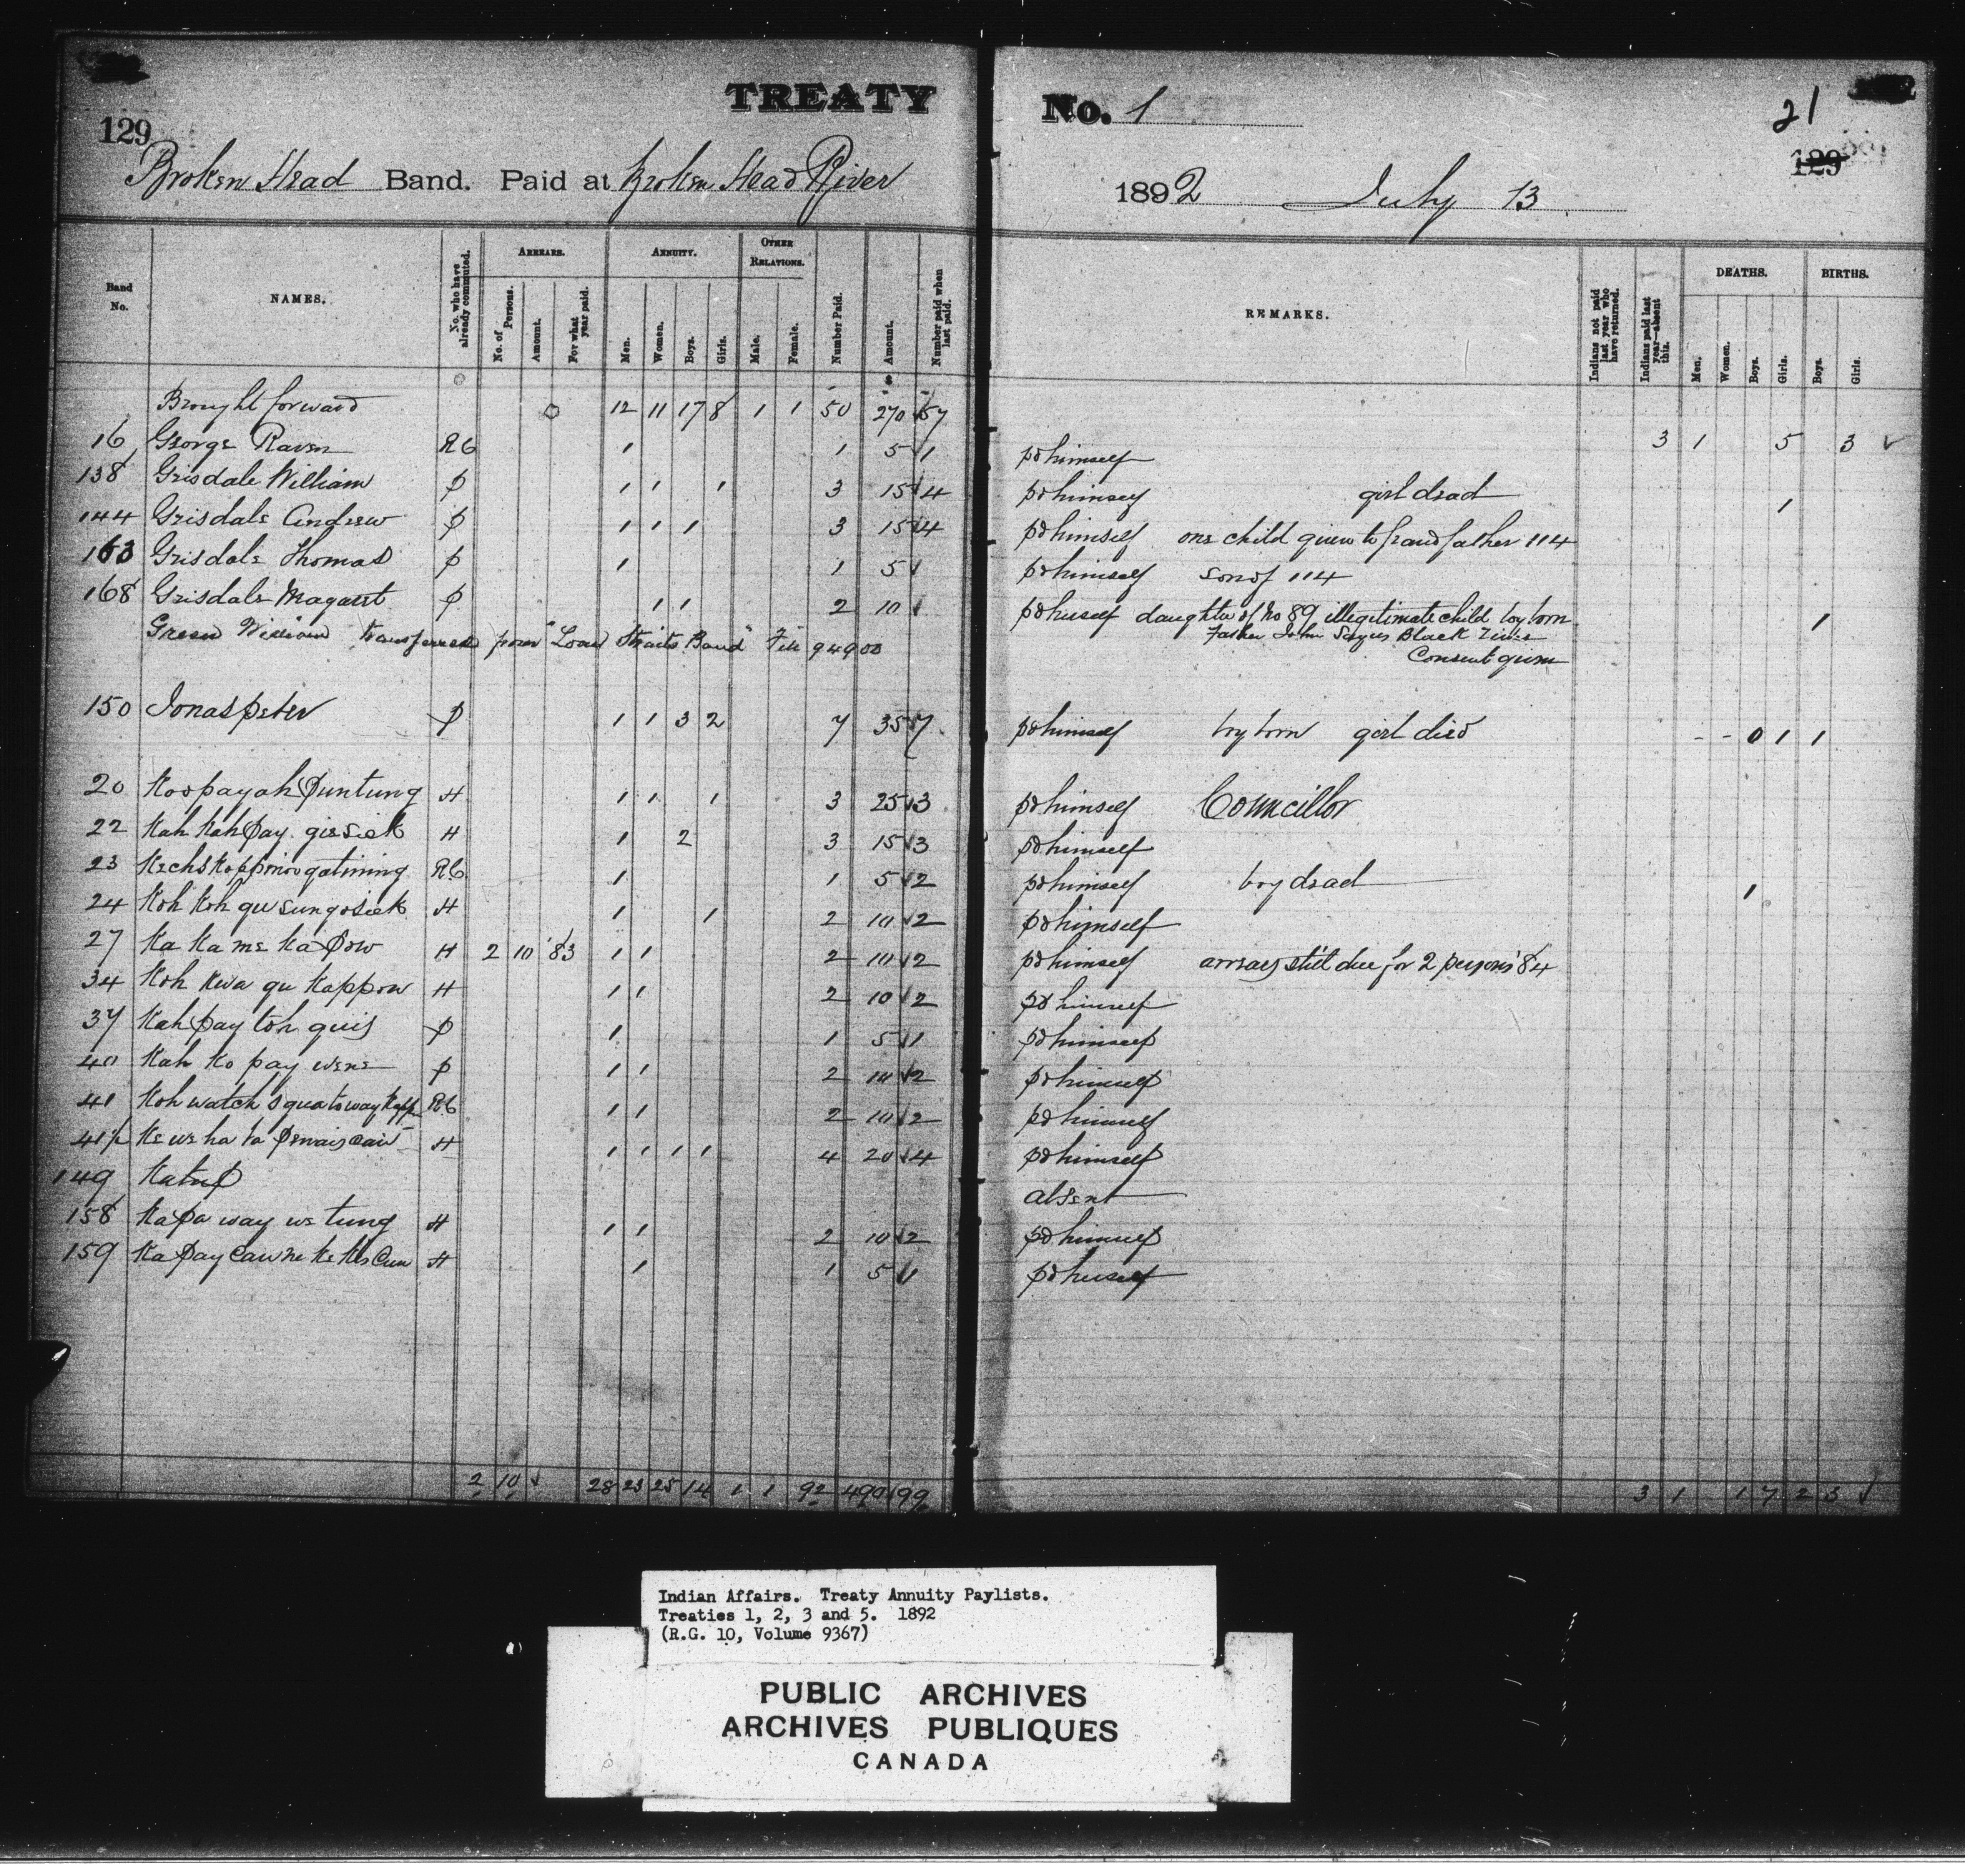 TREATY No. 1
129
21
129
Broken Head Band. Paid at Broken Head River 1892 July 13
Band No.
NAMES.
No. who have already commuted.
ARREARS.
No. of Persons.
Amount.
For what year paid.
ANNUITY.
Men.
Women.
Boys.
Girls.
OTHER RELATIONS.
Male.
Female.
Number Paid.
Amount.
Number paid when last paid.
REMARKS.
Indians not paid last year who have returned.
Indians paid last year—absent this.
DEATHS.
Men.
Women.
Boys.
Girls.
BIRTHS.
Boys.
Girls.
Brought forward 0 12 11 17 8 1 1 50 270 57 3 1 5 3 ✓
16 George Raven RC 1 1 5 1 pd himself
138 Grisdale William P 1 1 1 3 15 4 pd himself girl dead 1
144 Grisdale Andrew P 1 1 1 3 15 4 pd himself one child given to grandfather 114
163 Grisdale Thomas P 1 1 5 pd himself son of 114
168 Grisdale Magaret P 1 1 2 10 pd herself daughter of No 89 illegitimate child boy born 1
Father John Sayer Black River
Consent given
Green William transferred from "Loan Straits Band" File 94900
150 Jonas Peter P 1 1 3 2 7 35 7 pd himself boy born girl died - - 0 1 1
20 Koopayah Puntung H 1 1 1 3 25 3 pd himself Councillor
22 Kah Kah Pay gie sick H 1 2 3 15 3 pd himself
23 RC 1 1 5 2 pd himself boy dead 1
24 Koh Koh H 1 1 2 10 2 pd himself
27 Ka Ka me Ka Pow H 2 10 '83 1 1 2 10 2 pd himself arrears still due for 2 persons '84
34 Koh Kwa gu Kappow H 1 1 2 10 2 pd himself
37 Kah Pay toh quis P 1 1 5 1 pd himself
40 Kah Ko pay wene P 1 1 2 10 2 pd himself
41 Koh watch RC 1 1 2 10 2 pd himself
41½ Ke we ha ta H 1 1 1 1 4 20 4 pd himself
149 absent
158 Ka Pa way we tung H 1 1 2 10 2 pd himself
159 Ka Pay H 1 1 5 1 pd herself
2 10 ✓ 28 23 25 14 1 1 92 490 99 3 1 1 7 2 3 ✓
Indian Affairs. Treaty Annuity Paylists.
Treaties 1, 2, 3 and 5. 1892
(R.G. 10, Volume 9367)
PUBLIC ARCHIVES
ARCHIVES PUBLIQUES
CANADA